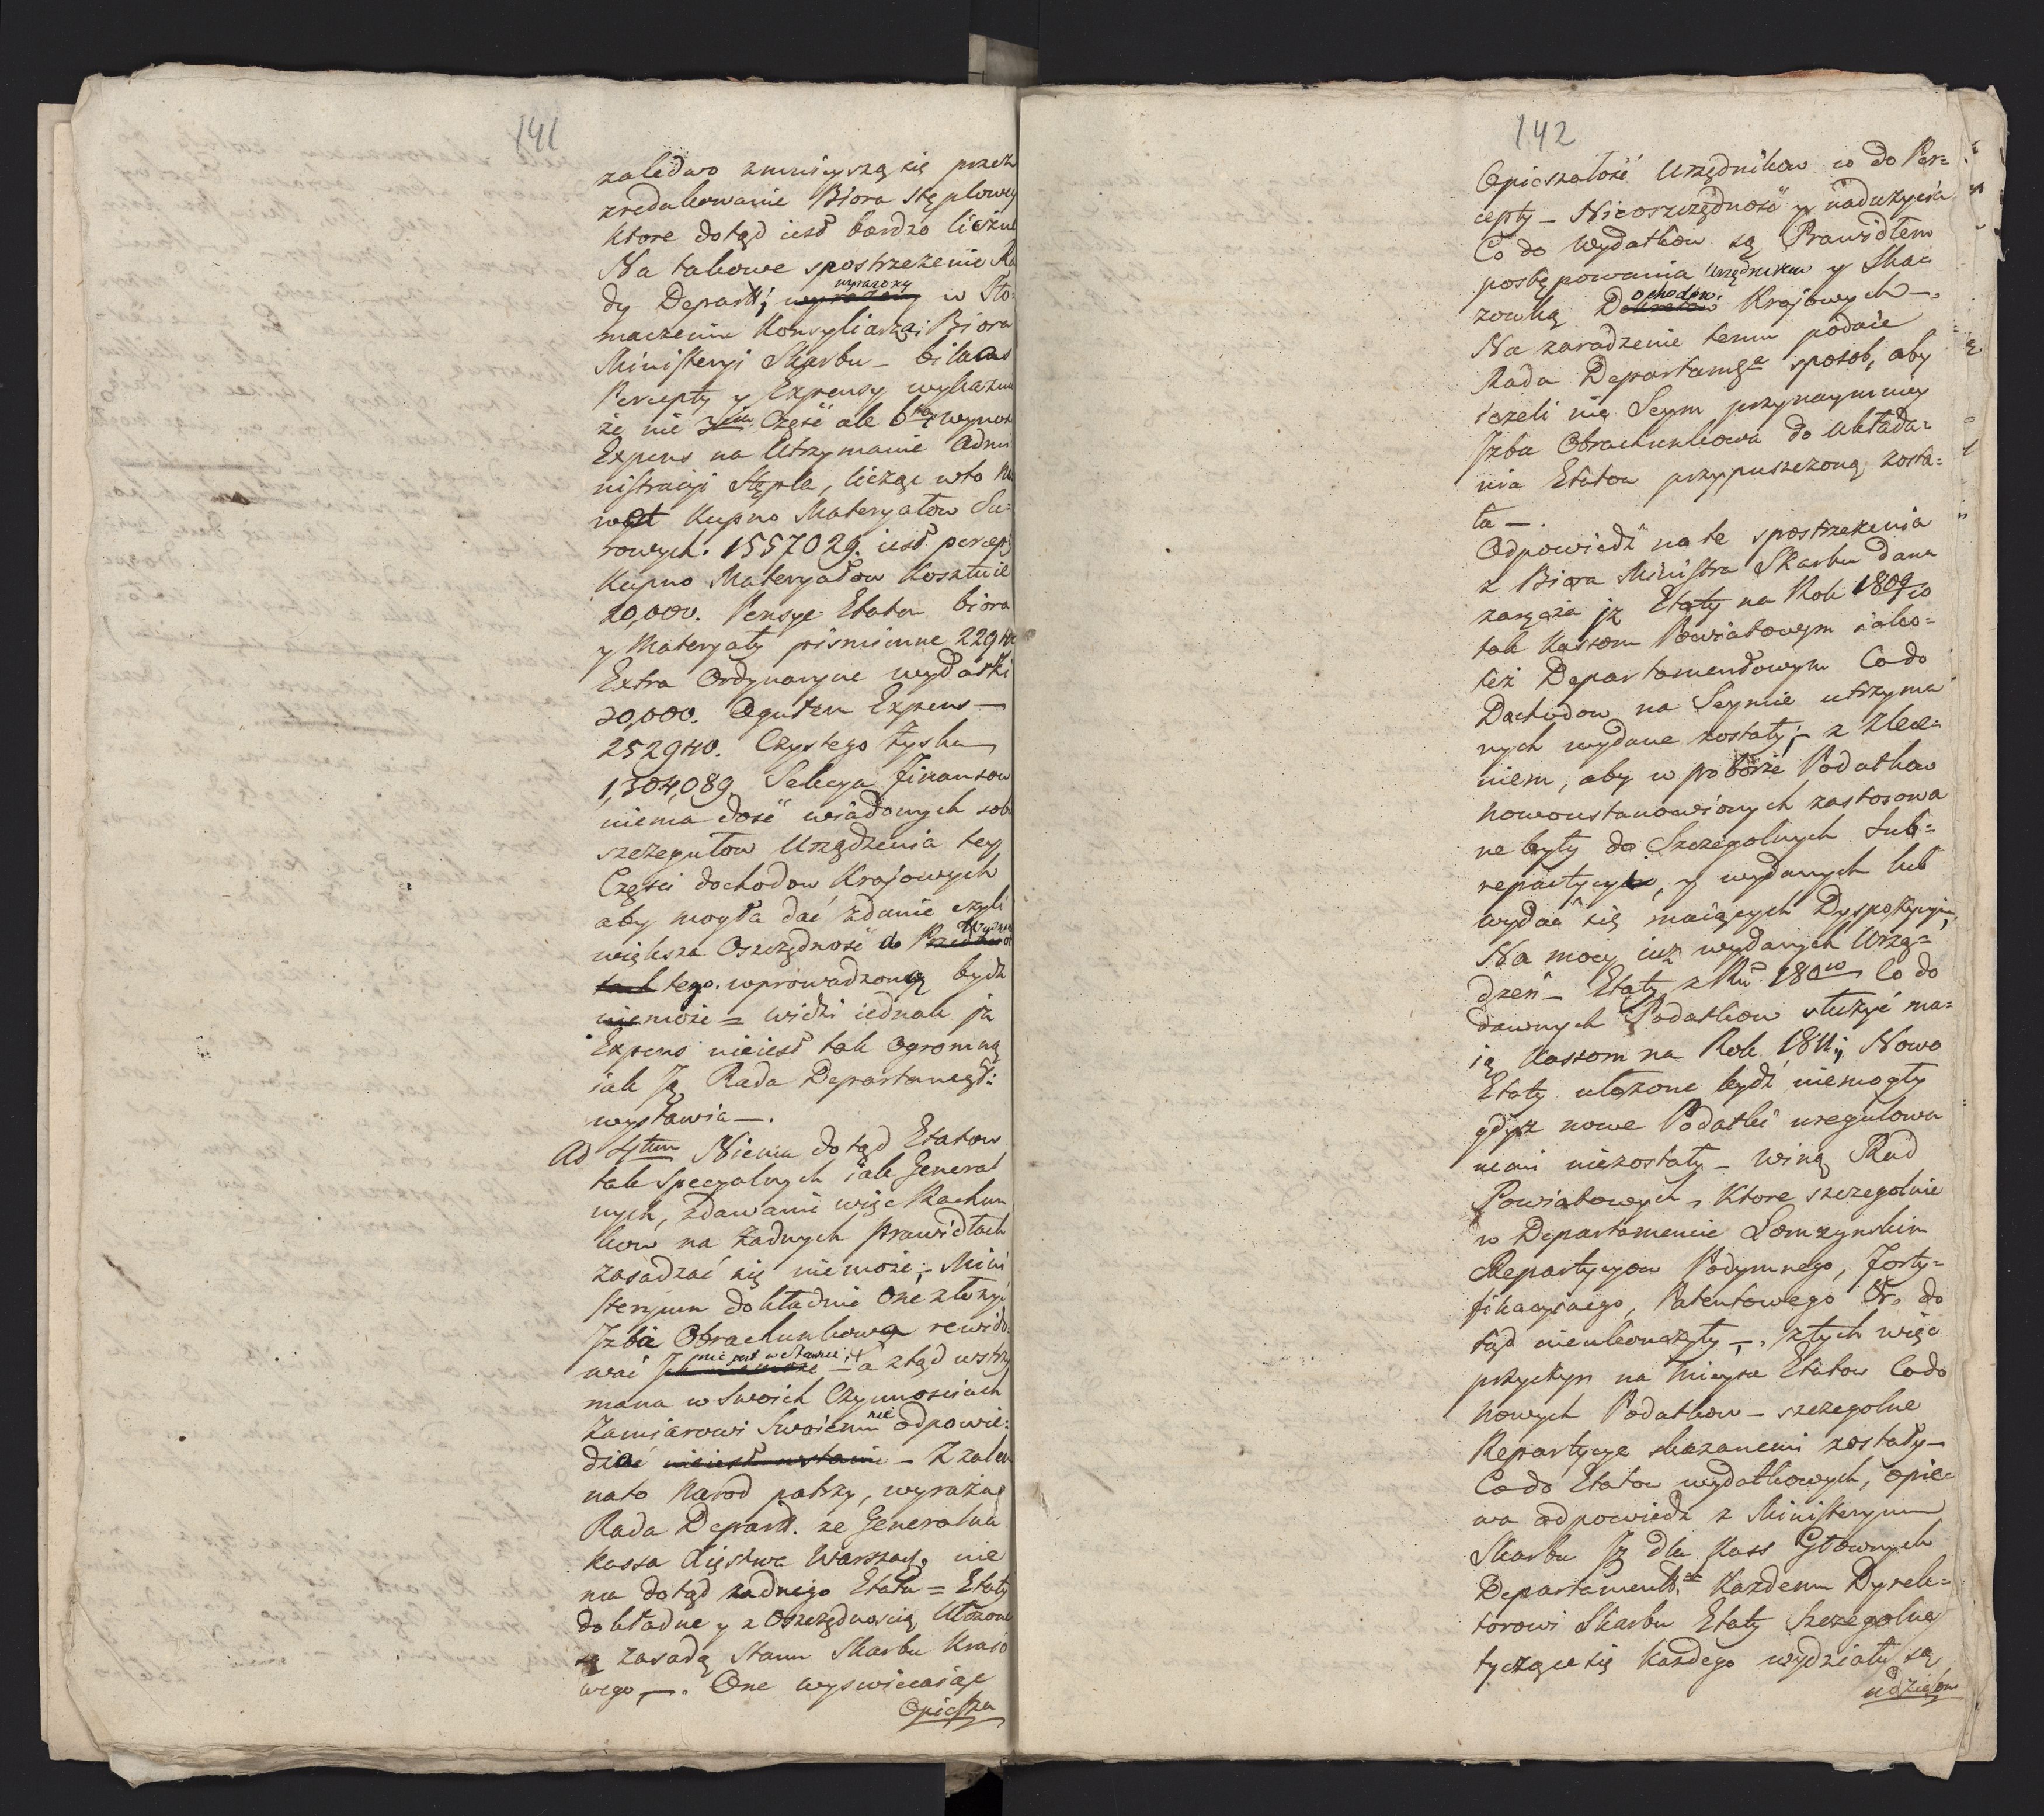 141
zaledwo zmnieyszą się przez
zredukowanie Biora stęplowey
Ktore dotąd iest bardzo liczne
Na takowe spostrzeżenie Ra
dy Departt; wyrażony w Tło-
maczeniu Konsyliarza; Biora
Ministeryi Skarbu _ bilans
Percepty y Expensy wykazuie
że nie 3cią Część ale 6tą wynosi
Expens na Utrzymanie Admi
nistracyi Stępla, licząc w to Na
wet Kupno Materyałow Su-
rowych. 1557029. iest percepty
Kupno Materyałow Kosztuie
20,000. Pensye Etatu biora
y Materyały piśmienne 22940
Extra Ordynaryine wydatki
30,000. Ogułem Expens —
252940. Czystego zysku
1,304,089. Sekcya Finansow
niema dość wiadomych sobie
szczegułow Urządzenia tey
Części dochodow Kraiowych
aby mogła dać zdanie czyli
większa Oszczędność do
tego wprowadzoną bydź
może = widzi iednak iż
Expens nieiest tak Ogromną
iak Ją Rada Departamegt:
wystawia —.
Ad 4tum Niema dotąd Etatow
tak Specyalnych iak General
nych, zdawanie więc Rachun
kow na żadnych prawidłach
zasadzać się niemoże; _ Mini
steryum dokładnie One złożyć
Izba Obrachunkowa rewido-
wać Jch nie jest w stanie; _ a ztąd wstrzy
mana w Swoich Czynnościach
Zamiarowi Swoiemu nie odpowie-
dzieć nieiest wstanie _ Z żalem
na to Narod patrzy, wyraża
Rada Departt. że Generalna
Kassa Xięstwa Warszaw. nie
ma dotąd żadnego Etatu = Etaty
dokładne y z Oszczędnością Ułożone
są zasadą Stanu Skarbu Kraio
wego —. One wyswiecaiąc
Opiesza
142
Opieszałość Urzędnikow co do Per=
cepty _ Nieoszczędność y nadużycia
Co do Wydatkow są Prawidłem
postępowania Urzędnikow y Ska=
zowką Dochodow: Kraiowych —.
Na zaradzenie temu podaie
Rada Departamgo sposob, aby
ieżeli nie Seym przynaymniey
Jzba Obrachunkowa do Układa=
nia Etatow przypuszczoną zosta=
ła —.
Odpowiedź na te spostrzeżenia
z Biora Ministra Skarbu dana
zaręcza iż Etaty na Rok 1809/10
tak Kassom Powiatowym iako=
też Departamentowym Co do
Dochodow na Seymie utrzyma
nych wydane zostały; _ z Zlece=
niem, aby w poborze Podatkow
nowoustanowionych zastosowa
ne były do Szczegolnych Sub=
repartycyi, y wydanych lub
wydać się maiących Dyspozycyi,
Na mocy iuż wydanych Urzą=
dzeń _ Etaty z Ru 1810 Co do
dawnych Podatkow służyć ma=
ią Kassom na Rok 1811; Nowo
Etaty ułożone bydź niemogły
gdyż nowe Podatki uregulowa
nemi niezostały _ winą Rad
Powiatowych, Ktore szczegolnie
w Departamencie Łomzynskim
Repartycyow Podymnego, Forty=
fikacyinego, Patentowego &c. do
tąd nieukonczyły —. z tych więc
przyczyn na mieysce Etatow Co do
nowych Podatkow _ szczegolne
Repartycye skazanemi zostały _
Co do Etatow wydatkowych, opie=
wa odpowiedz z Ministeryum
Skarbu Jż dla Kass Głownych
Departamentt. Każdemu Dyrek=
torowi Skarbu Etaty Szczegolne
tyczące się Każdego wydziału są
udzielone